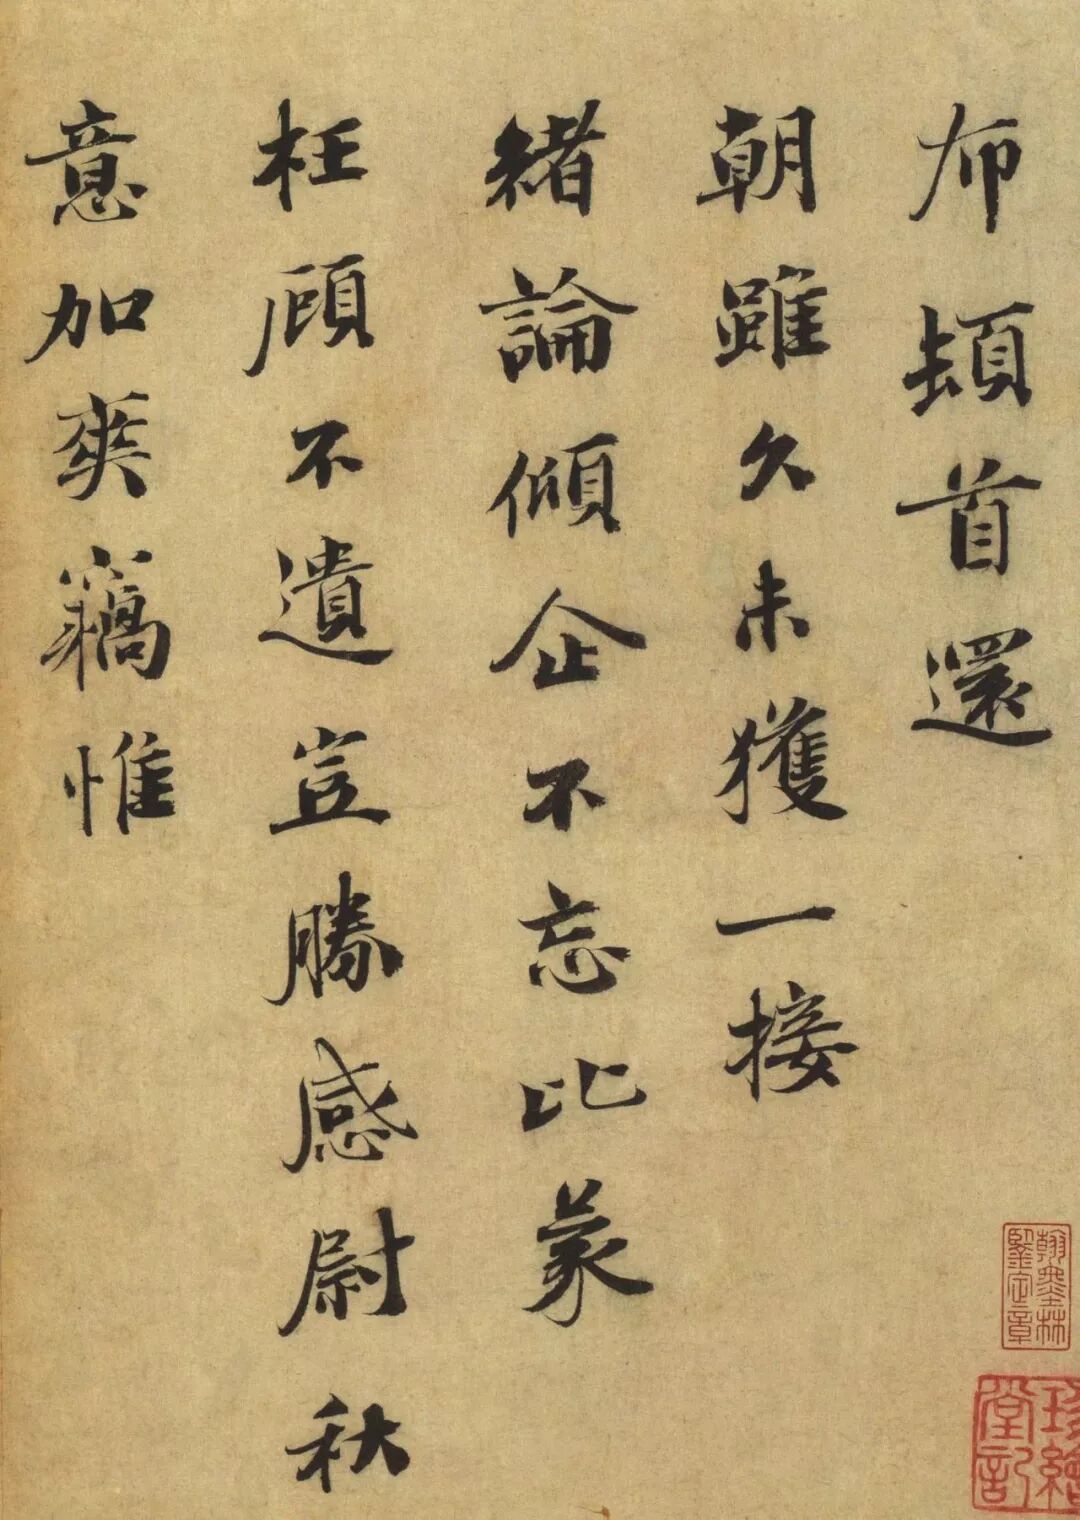 布頓首還
朝雖久未獲一接
緒論傾企不忘比蒙
枉顧不遺豈勝感尉秋
意加爽竊惟
翰墨林
鑒定章
珍繪
堂記